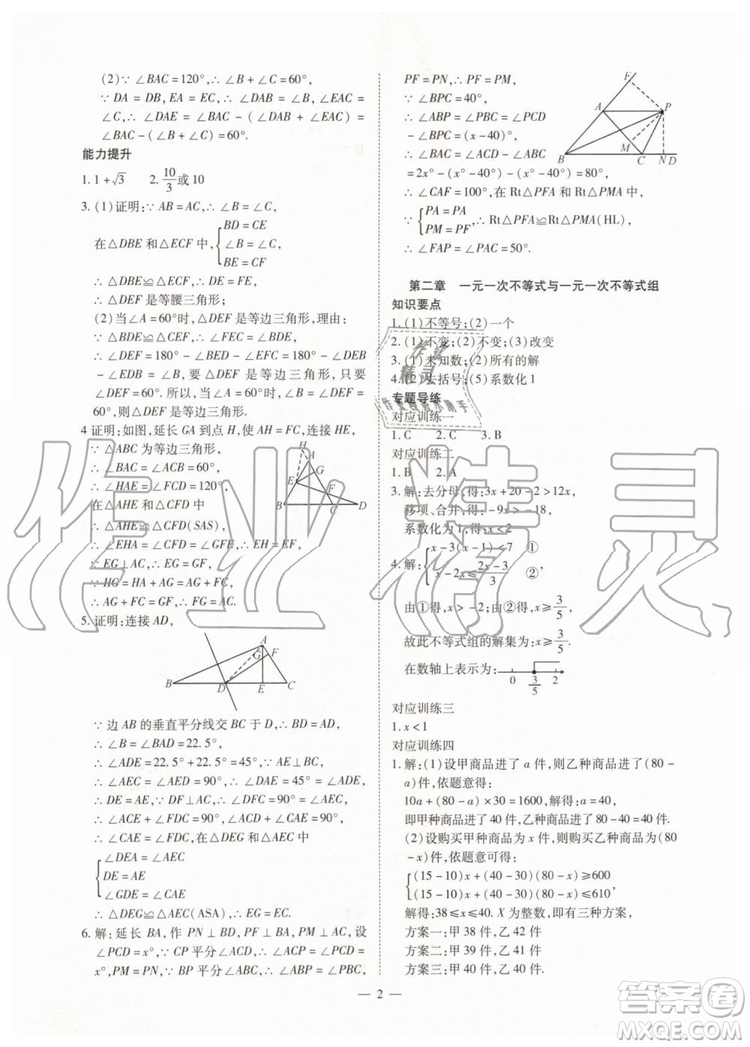 (2)∵ ∠BAC=120°,∴ ∠B+∠C=60°,
∵ DA=DB,EA=EC,∴ ∠DAB=∠B,∠EAC=
∠C,∴ ∠DAE=∠BAC-(∠DAB+∠EAC)=
∠BAC-(∠B+∠C)=60°.
能力提升
1. 1+√3  2. 10/3或10
3. (1)证明:∵ AB=AC,∴ ∠B=∠C,
在△DBE 和△ECF 中,{BD=CE
∠B=∠C
BE=CF
∴ △DBE≌△ECF,∴ DE=EF,
∴ △DEF 是等腰三角形,
(2)当∠A=60°,△DEF 是等边三角形,理由:
∵ △DEF 是等边三角形,∴ ∠DEF=60°,
∴ ∠DEF=180°-∠BED-∠FEC=180°-∠BED
-∠BDE=∠B=60°.所以,当∠A 等于60°
时,△DEF 是等边三角形.
4 证明:如图,延长 GA 到点 H,使 AH=CF,连接 HE,
∵ △ABC 为等边三角形,
∴ ∠BAC=∠ACB=60°,
∴ ∠EAH=∠DCF,
在△AHE 和△CFD 中
∴ △AHE≌△CFD(SAS),
∴ ∠EHA=∠CFD=∠GFE,∴ EH=EF,
∵ EG⊥AC,∴ HG=GF,
∵ HG=HA+AG=AG+CF,
∴ AG+CF=GF,∴ FG=AG+CF.
5. 证明:连接 AD,
∵ 边 AB 的垂直平分线交 BC 于 D,∴ BD=AD,
∴ ∠B=∠BAD=22.5°,
∴ ∠ADE=22.5°+22.5°=45°,
∴ ∠AEC=∠AED=90°,∴ ∠DAE=45°=∠ADE,
∴ DE=AE,∵ DF⊥AC,∴ ∠AFD=∠AEC=90°,
∴ ∠ACE+∠CAE=90°,∠CAE+∠FGA=90°,
∴ ∠CAE=∠FDC,在△DEG 和△AEC 中
{∠DEA=∠AEC
DE=AE
∠CAE=∠FDC
∴ △DEG≌△AEC(ASA),∴ EG=EC.
6. 解:延长 BA,作 PN⊥BD,PF⊥BA,PM⊥AC,设
∠PCD=x°,∵ CP 平分∠ACD,∴ ∠ACP=∠PCD
=x°,PM=PN,∵ BP 平分∠ABC,∴ ∠ABP=∠PBC,
PF=PN,∴ PF=PM,
∵ ∠BPC=40°,
∴ ∠ABP=∠PBC=∠PCD-
∠BPC=(x-40)°,
∴ ∠BAC=∠ACD-∠ABC=
2x°-(x°-40°)-(x°-40°)=80°,
∴ ∠CAF=100°,在 Rt△PFA 和 Rt△PMA 中,
∵ {PA=PA
PM=PF,∴ Rt△PFA≌Rt△PMA(HL),
∴ ∠FAP=∠PAC=50°.
第二章 一元一次不等式与一元一次不等式组
知识要点
1. (1)不等号;(2)一个
2. (1)不变;(2)不变;(3)改变
3. (1)未知数;(2)所有的解
4. (2)去括号;(5)系数化1
专题导练
对应训练一
1. C  2. C  3. B
对应训练二
1. B  2. A
3. 解:去分母,得:3x+20-2>12x,
移项、合并,得:-9x>-18,
系数化为1,得:x<2
4. 解:{x-3(x-1)<7 ①
由①得,x>-2,由②得,x≥3/5,
故此不等式组的解集为:x≥3/5,
在数轴上表示为:
对应训练三
1. x<1
对应训练四
1. 解:(1)设甲种商品进了 a 件,则乙种商品进了(80-
a)件,依题意得:
10a+(80-a)×30=1600,解得:a=40,
即甲种商品进了 40 件,乙种商品进了 40 件.
(2)设购买甲种商品为 x 件,则购买乙种商品为(80
-x)件,依题意得:
{(15-10)x+(40-30)(80-x)≥600
(15-10)x+(40-30)(80-x)≤610,
解得:38≤x≤40. X 为整数,即有三种方案,
方案一:甲 38 件,乙 42 件
方案二:甲 39 件,乙 41 件
方案三:甲 40 件,乙 40 件.
— 2 —
作业精灵
答案圈
MXQE.COM